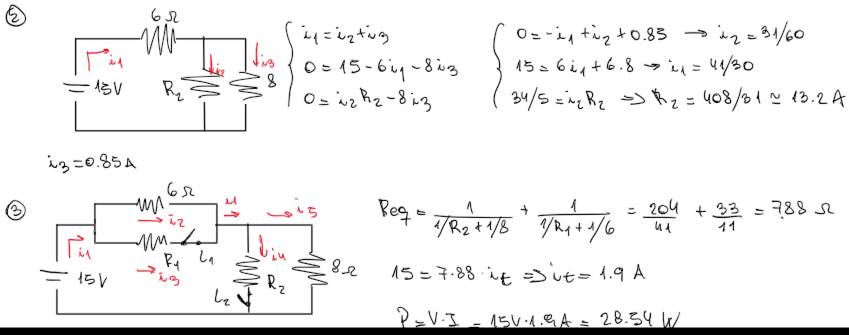 2
6Ω
i1
15V
i2
R2
i3
8
i1=i2+i3
0=15-6i1-8i3
0=i2R2-8i3
0=-i1+i2+0.85 → i2=31/60
15=6i1+6.8 → i1=41/30
34/5=i2R2 => R2=408/31≃13.2 A
i3=0.85A
3
6Ω
i2
i1
i5
i1
R1
L1
i3
15V
i4
L2
R2
8Ω
Req = 1/(1/R2+1/8) + 1/(1/R1+1/6) = 204/41 + 33/11 = 7.88 Ω
15=7.88·it => it=1.9 A
P=V·I = 15V·1.9A = 28.54 W